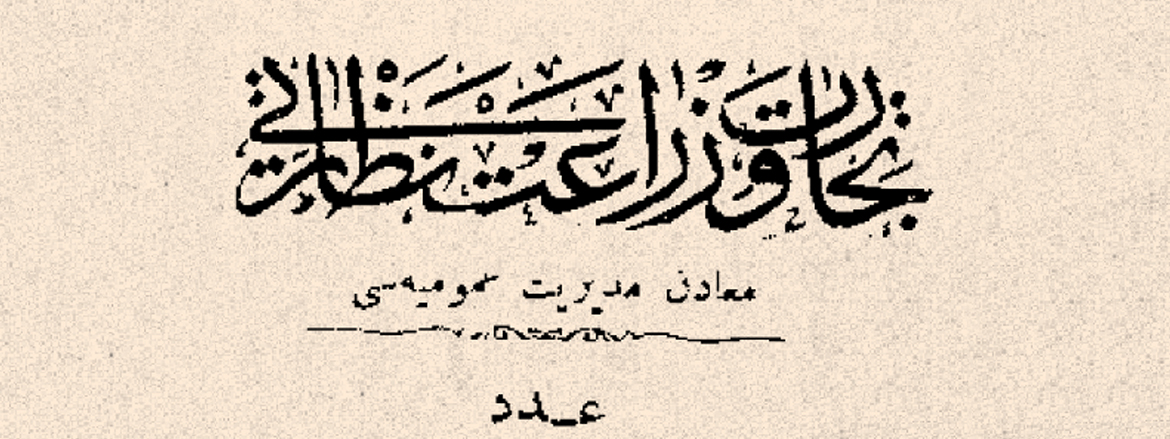 تجارت و زراعت نظارتی
معادن مدیریت عمومیه‌سی
عـدد